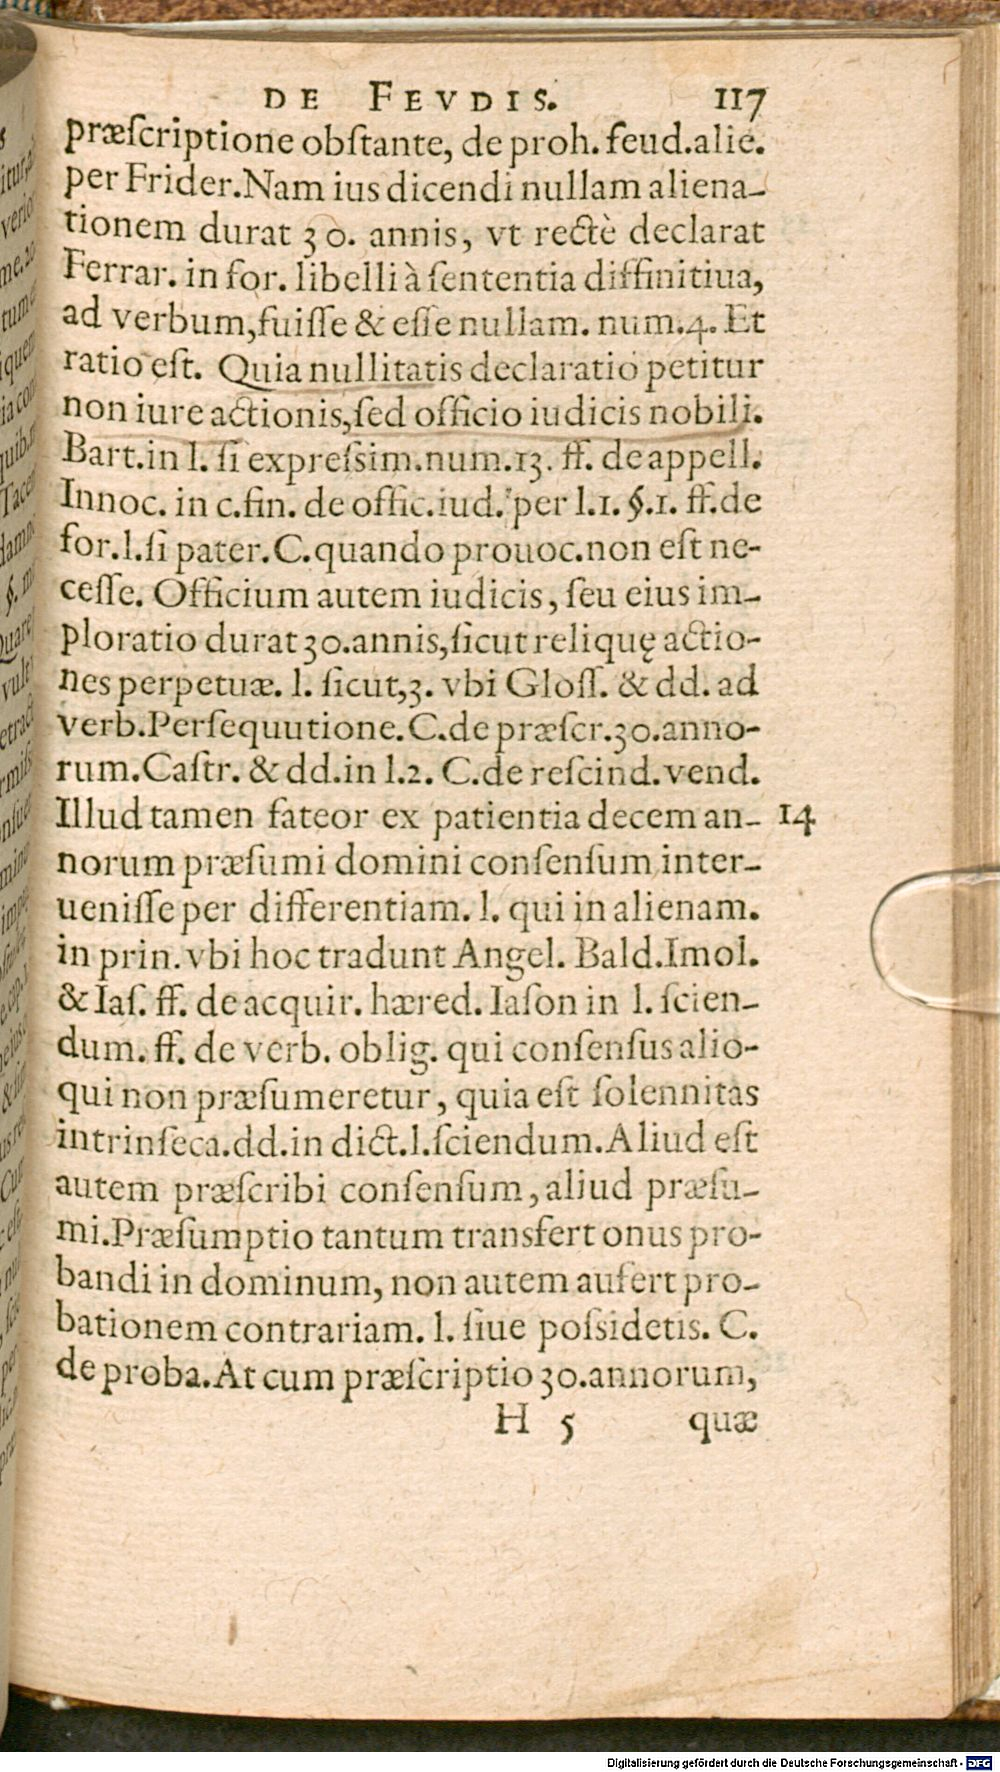 DE FEVDIS. 117
præſcriptione obſtante, de proh. feud.alie.
per Frider.Nam ius dicendi nullam aliena-
tionem durat 30. annis, vt rectè declarat
Ferrar. in for. libelli à ſententia diffinitiua,
ad verbum,fuiſſe & eſſe nullam. num.4. Et
ratio eſt. Quia nullitatis declaratio petitur
non iure actionis,ſed officio iudicis nobili.
Bart.in l. ſi expreſsim.num.13. ff. de appell.
Innoc. in c.fin. de offic.iud. per l.1. §.1. ff.de
for.l.ſi pater.C.quando prouoc.non eſt ne-
ceſſe. Officium autem iudicis, ſeu eius im-
ploratio durat 30.annis,ſicut reliquę actio-
nes perpetuæ. l. ſicut,3. vbi Gloſſ. & dd. ad
verb.Perſequutione.C.de præſcr.30.anno-
rum.Caſtr. & dd.in l.2. C.de reſcind.vend.
Illud tamen fateor ex patientia decem an- 14
norum præſumi domini conſenſum inter-
ueniſſe per differentiam. l. qui in alienam.
in prin.vbi hoc tradunt Angel. Bald.Imol.
& Iaſ. ff. de acquir. hæred. Iaſon in l. ſcien-
dum. ff. de verb. oblig. qui conſenſus alio-
qui non præſumeretur, quia eſt ſolennitas
intrinſeca.dd.in dict.l.ſciendum.Aliud eſt
autem præſcribi conſenſum, aliud præſu-
mi.Præſumptio tantum transfert onus pro-
bandi in dominum, non autem aufert pro-
bationem contrariam. l. ſiue poſsidetis. C.
de proba.At cum præſcriptio 30.annorum,
H 5 quæ
Digitalisierung gefördert durch die Deutsche Forschungsgemeinschaft - DFG